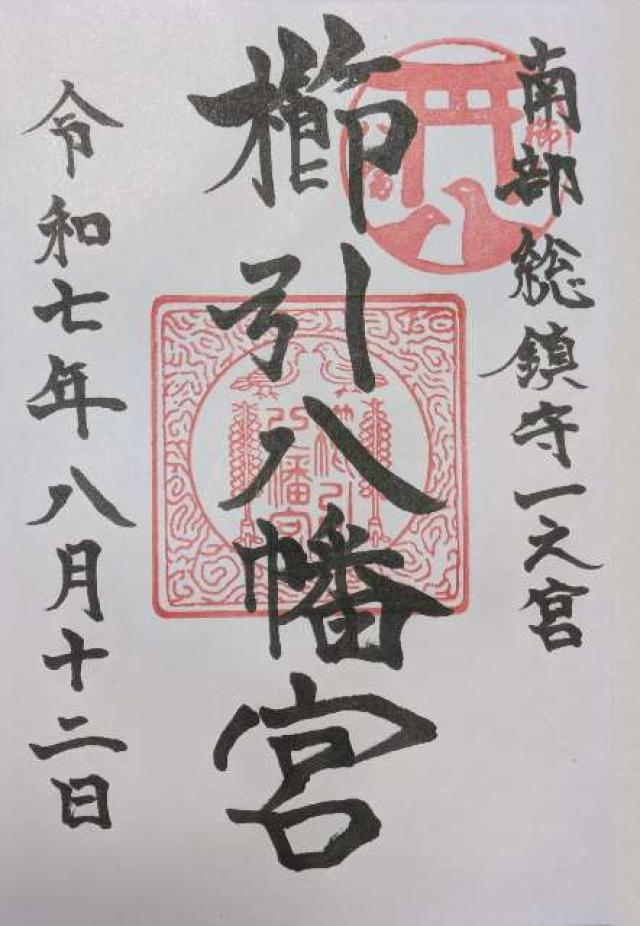 南部総鎮守一之宮
櫛引八幡宮
令和七年八月十二日
櫛引
八幡宮